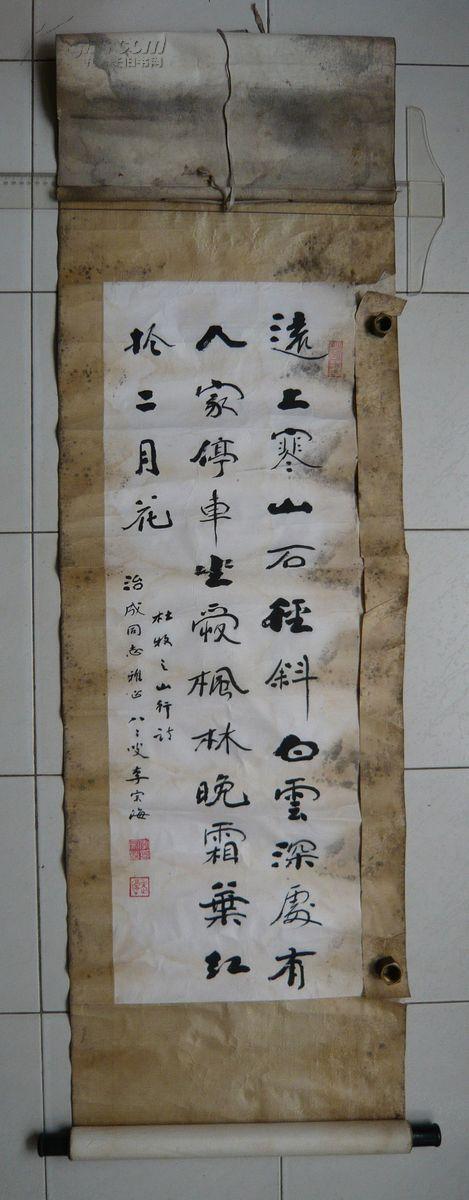 遠上寒山石徑斜白雲深處有
人家停車坐愛楓林晚霜葉紅
扵二月花
杜牧之山行詩
治成同志雅正 八〻叟李宗海